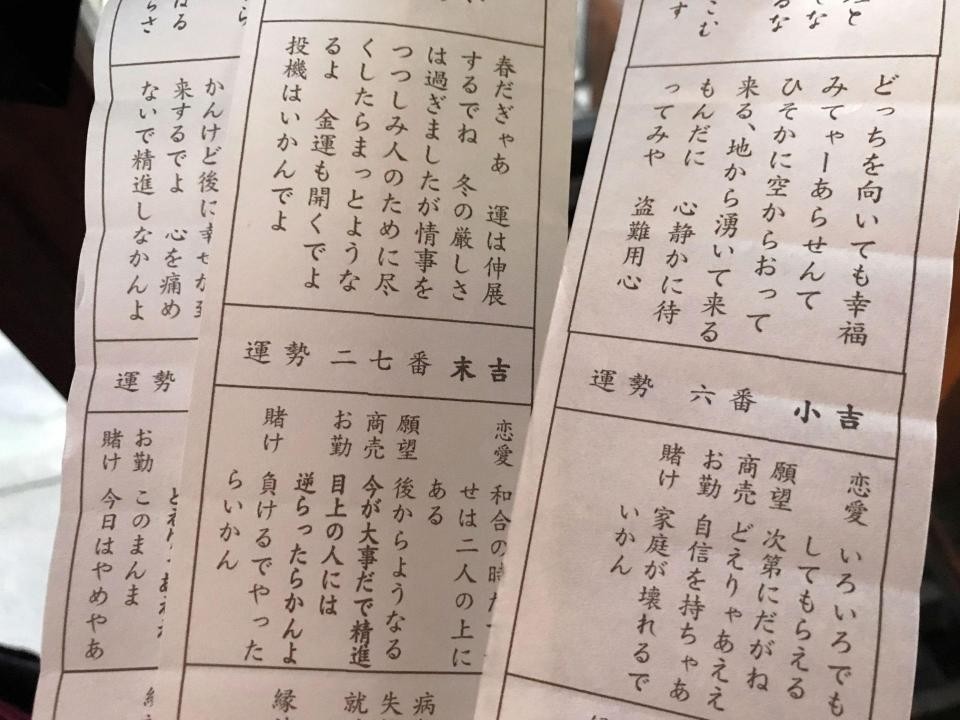 てな
るな
こむ
す
どっちを向いても幸福
みてゃーあらせんて
ひそかに空からおって
来る、地から湧いて来る
もんだに 心静かに待
ってみや 盗難用心
運勢 六番 小吉
恋愛 いろいろでも
してもらえる
願望 次第にだがね
商売 どえりゃあええ
お勤 自信を持ちゃあ
賭け 家庭が壊れるで
いかん
春だぎゃあ 運は伸展
するでね 冬の厳しさ
は過ぎましたが情事を
つつしみ人のために尽
くしたらまっとような
るよ 金運も開くでよ
投機はいかんでよ
運勢 二七番 末吉
恋愛 和合の時だ
せは二人の上に
ある
願望 後からようなる
商売 今が大事だで精進
お勤 目上の人には
逆らったらかんよ
賭け 負けるでやった
らいかん
病
失
就
縁
はる
らさ
かんけど後に幸せが
来するでよ 心を痛め
ないで精進しなかんよ
運勢
お勤 このまんま
賭け 今日はやめやあ